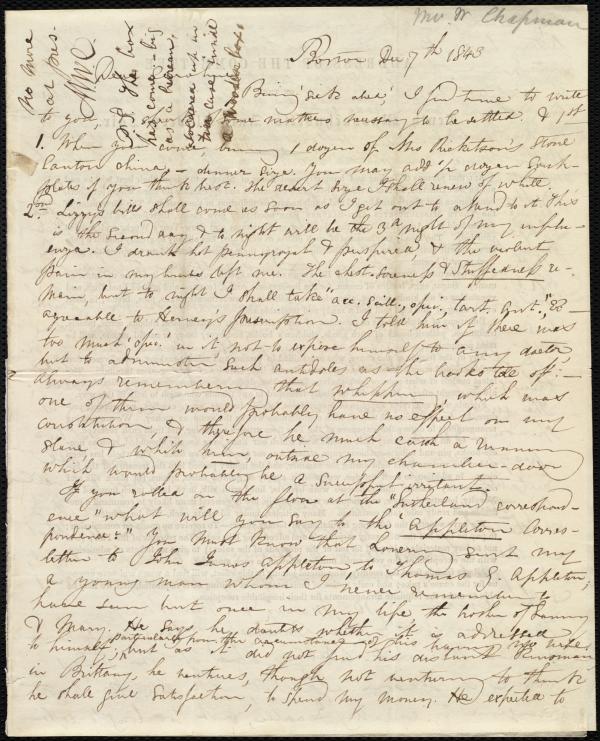 Mrs. W Chapman
No more
at pres-
P.S. The box
may come, big
as a
in case, inside
a wooden box
Boston Dec 7th 1843
Dear
Being sick abed, I find time to write
to you, some matters necessary to be settled. & 1st
1. When you come, bring 1 dozen of Mrs Ricketson's Stone
Canton china, - dinner size. You may add ½ dozen Soup-
plates if you think best. The desert size I shall renew of white
2nd Lizzy's bills shall come as soon as I get out to attend to it. This
is the second day & to night will be the 3d night of my influ-
enza. I drank hot pennyroyal & perspired & the violent
pain in my left me. The chest-soreness & Stuffedness re-
main, but to night I shall take "ace. Scill., opii., tart. Ant.," &c -
agreeable to Henry's prescription. I told him if there was
too much 'opii.' in it, not to expose himself to any doctor,
but to administer such antidotes as the books tell of: -
always remembering that whipping, which was
one of them would probably have no effect on my
constitution, & therefore he must catch a running
slave, & whip him, outside my chamber-door
which would probably be a successful irritant.
If you rolled on the floor at the "Sutherland correspond-
ence" what will you say to the "Appleton Corres-
pondence?" You must know that Lowering sent my
letter to John James Appleton, to Thomas G. Appleton;
a young man whom I never remember to
have seen but once in my life, the brother of Fanny
& Mary. He says he doubts whether it is addressed
to himself, particularly from the circumstance of his having no wife,
but as it did not find his discreet
in Brittany, he ventures, though not venturing to think
he shall give satisfaction, to spend my money. He expected to